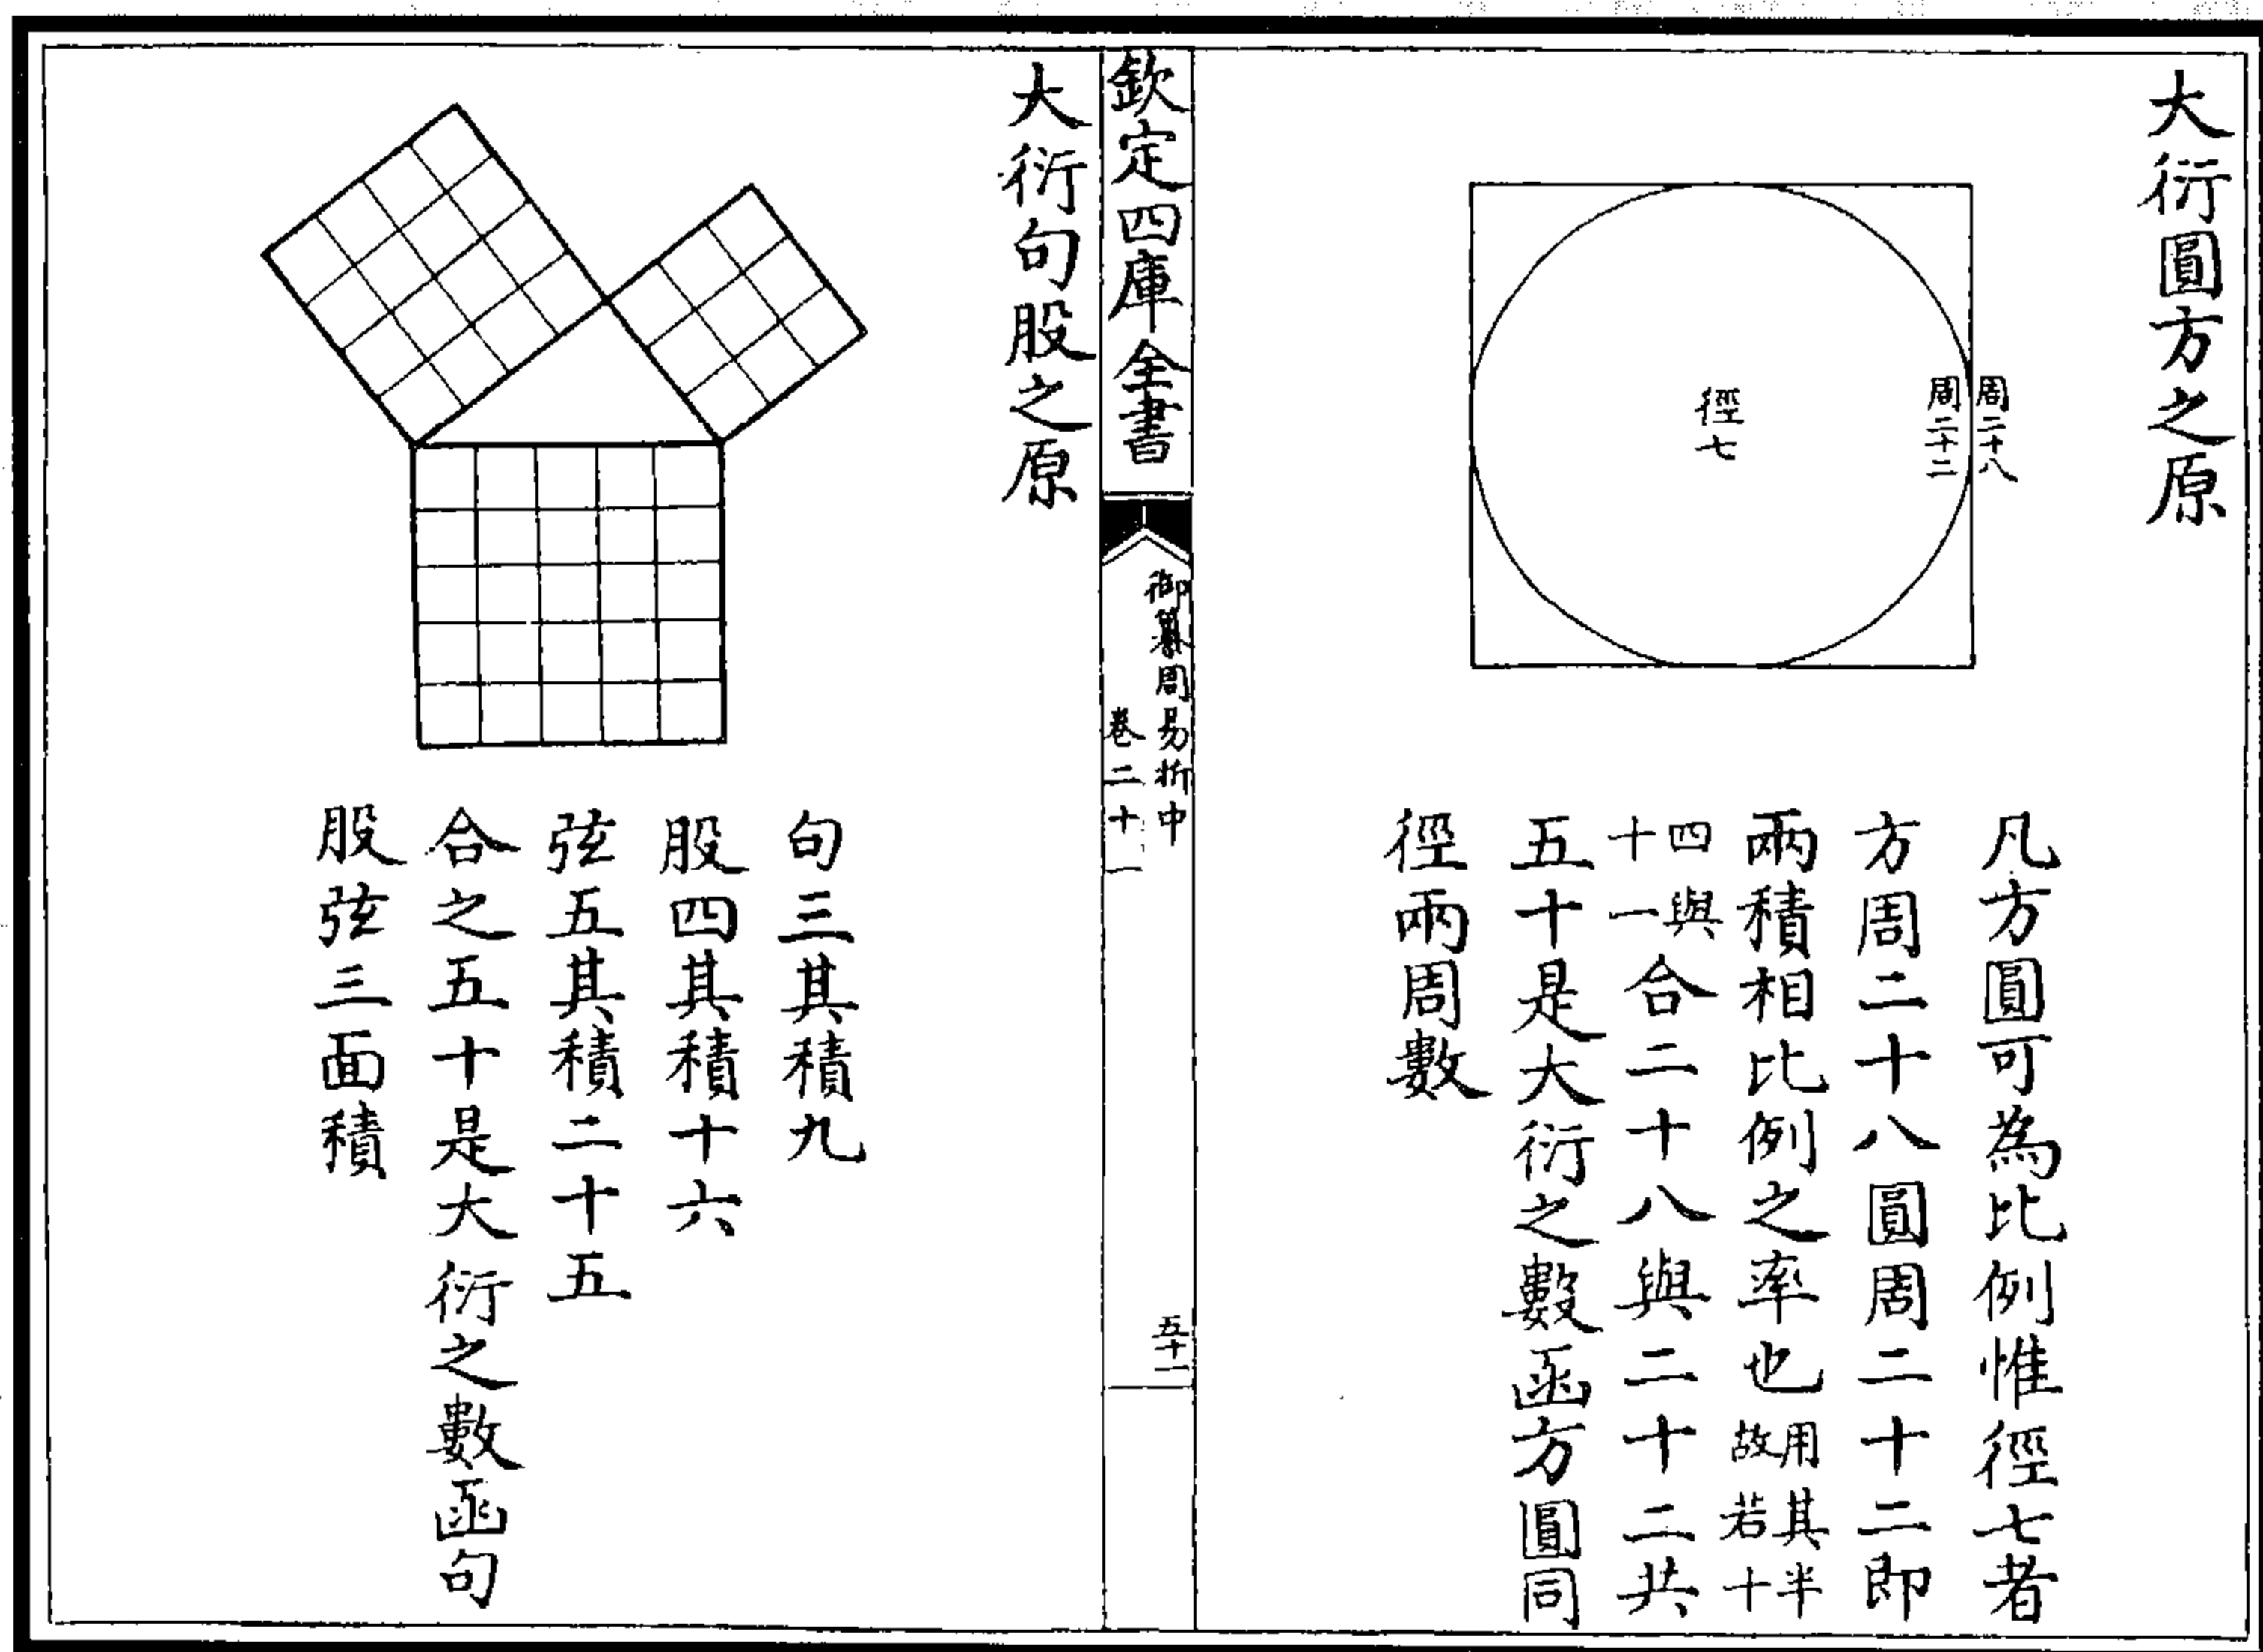 大衍圓方之原
周二十八
周二十二
徑七
凡方圓可為比例惟徑七者
方周二十八圓周二十二即
兩積相比例之率也用其半故若十
四與十一合二十八與二十二共
五十是大衍之數函方圓同
徑兩周數
欽定四庫全書
御纂周易折中
卷二十一
五十一
大衍句股之原
句三其積九
股四其積十六
弦五其積二十五
合之五十是大衍之數函句
股弦三面積